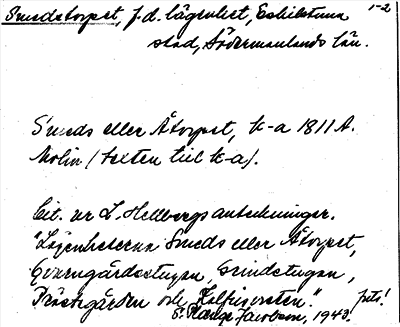 Smedstorpet, f.d. lägenhet, Eskilstuna 1-2
stad, Södermanlands län.
Smeds eller Åtorpet, k-a 1811 A.
Molin (texten till k-a).
Cit. ur L. Hellbergs anteckningar.
"Lägenheterna Smeds eller Åtorpet,
Qvarngärdsstugan, Grindstugan,
Prästgården och
forts!
1942